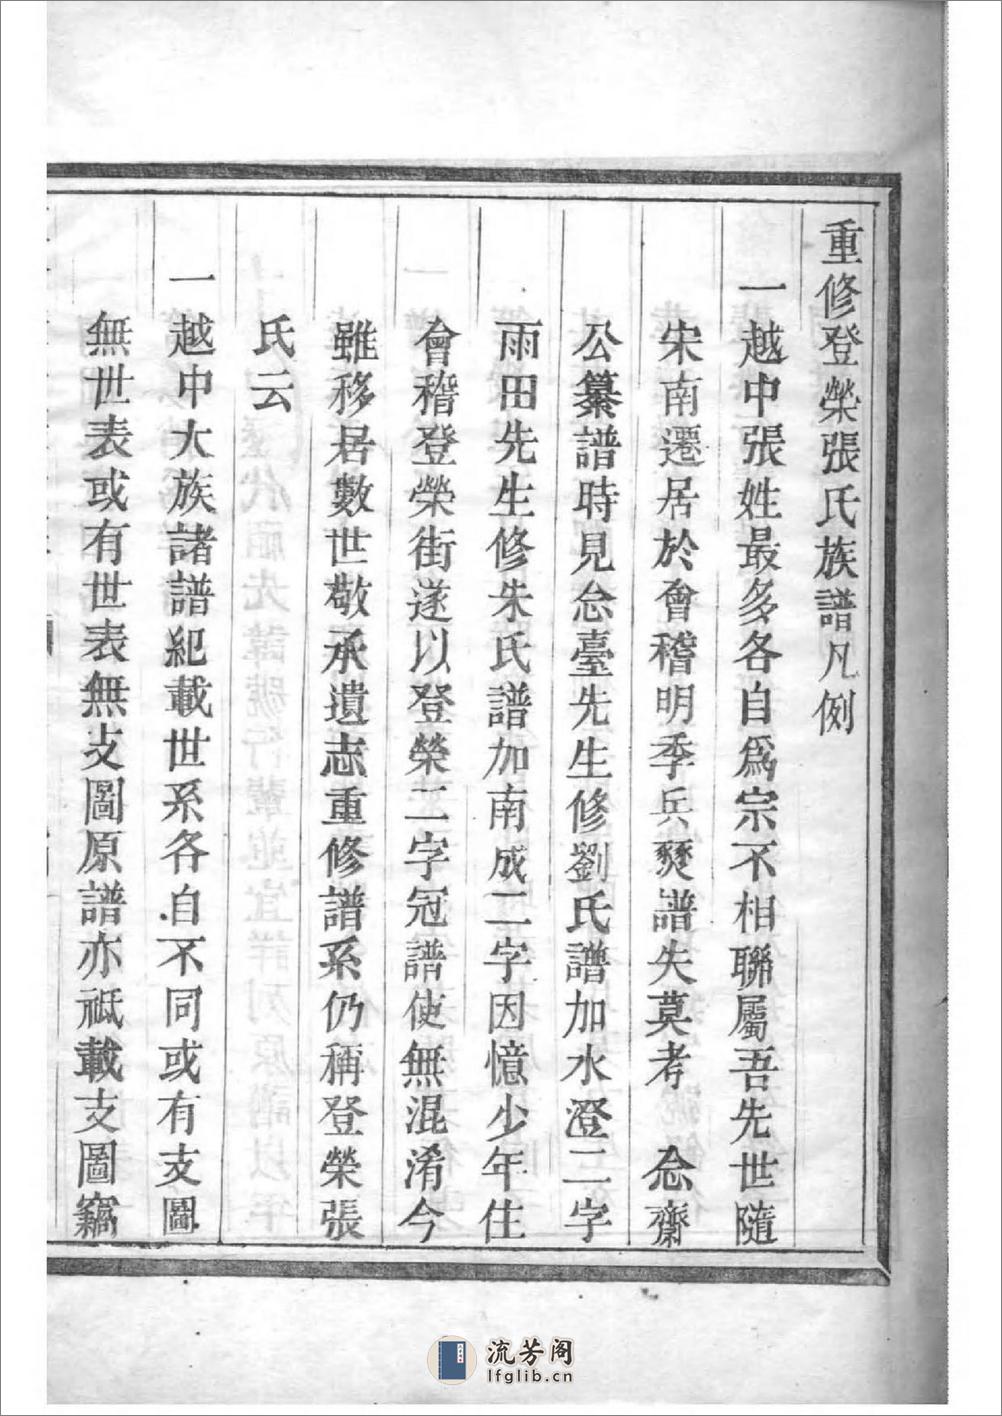 重修登榮張氏族譜凡例
一越中張姓最多各自爲宗不相聯屬吾先世隨
宋南遷居於會稽明季兵燹譜失莫考 念齋
公纂譜時見念臺先生修劉氏譜加水澄二字
雨田先生修朱氏譜加南成二字因憶少年住
會稽登榮街遂以登榮二字冠譜使無混淆今
雖移居數世敬承遺志重修譜系仍稱登榮張
氏云
一越中大族諸譜紀載世系各自不同或有支圖
無世表或有世表無支圖原譜亦祗載支圖竊
流芳阁
lfglib.cn